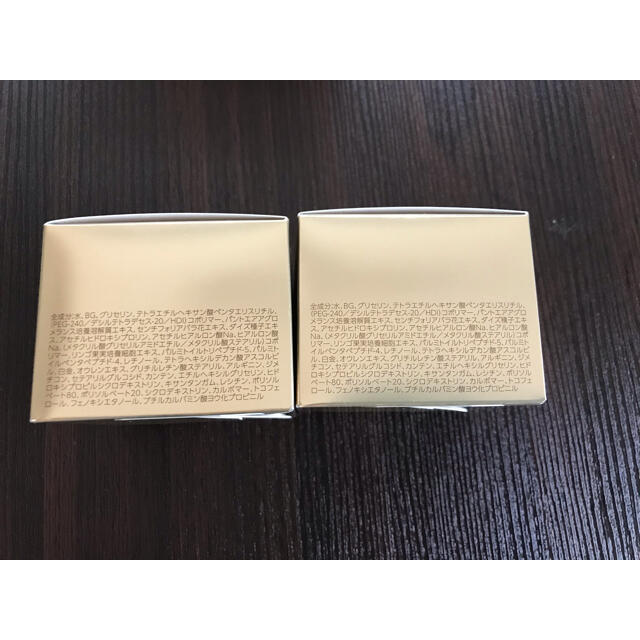 全成分：水、BG、グリセリン、テトラエチルヘキサン酸ペンタエリスリチル、
(PEG-240/デシルテトラデセス-20/HDI)コポリマー、パントエアアグロ
メランス培養溶解質エキス、センチフォリアバラ花エキス、ダイズ種子エキ
ス、アセチルヒドロキシプロリン、アセチルヒアルロン酸Na、ヒアルロン酸
Na、(メタクリル酸グリセリルアミドエチル/メタクリル酸ステアリル)コポ
リマー、リンゴ果実培養細胞エキス、パルミトイルトリペプチド-5、パルミト
イルペンタペプチド-4、レチノール、テトラヘキシルデカン酸アスコルビ
ル、白金、オウレンエキス、グリチルレチン酸ステアリル、アルギニン、ジメ
チコン、セテアリルグルコシド、カンテン、エチルヘキシルグリセリン、ヒド
ロキシプロピルシクロデキストリン、キサンタンガム、レシチン、ポリソル
ベート80、ポリソルベート20、シクロデキストリン、カルボマー、トコフェ
ロール、フェノキシエタノール、ブチルカルバミン酸ヨウ化プロピニル
全成分：水、BG、グリセリン、テトラエチルヘキサン酸ペンタエリスリチル、
(PEG-240/デシルテトラデセス-20/HDI)コポリマー、パントエアアグロ
メランス培養溶解質エキス、センチフォリアバラ花エキス、ダイズ種子エキ
ス、アセチルヒドロキシプロリン、アセチルヒアルロン酸Na、ヒアルロン酸
Na、(メタクリル酸グリセリルアミドエチル/メタクリル酸ステアリル)コポ
リマー、リンゴ果実培養細胞エキス、パルミトイルトリペプチド-5、パルミト
イルペンタペプチド-4、レチノール、テトラヘキシルデカン酸アスコルビ
ル、白金、オウレンエキス、グリチルレチン酸ステアリル、アルギニン、ジメ
チコン、セテアリルグルコシド、カンテン、エチルヘキシルグリセリン、ヒド
ロキシプロピルシクロデキストリン、キサンタンガム、レシチン、ポリソル
ベート80、ポリソルベート20、シクロデキストリン、カルボマー、トコフェ
ロール、フェノキシエタノール、ブチルカルバミン酸ヨウ化プロピニル